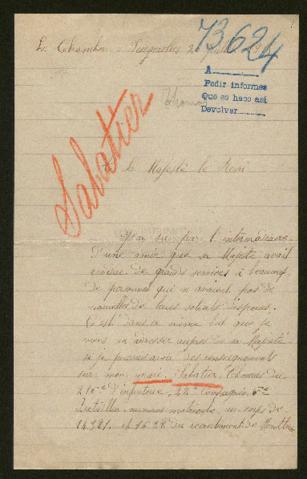 Le Chambon-Feugerolles 2
73.624
A
Pedir informes
Que se hace así
Devolver
Sabatier
A Sa Majesté le Roi
Ayant su par l'intermédiaire
d'une amie que sa Majesté avait
de grands services à beaucoup
de personnes qui n'avaient pas de
nouvelles de leurs soldats disparus.
C'est dans ce même but que je
viens m'adresser auprès de sa Majesté
si je pouvais avoir des renseignements
sur mon mari Sabatier Thomas du
216e d'infanterie, 22e Compagnie, 6me
Bataillon numéro matricule, au corps
et 1528 du recrutement de Montbrison